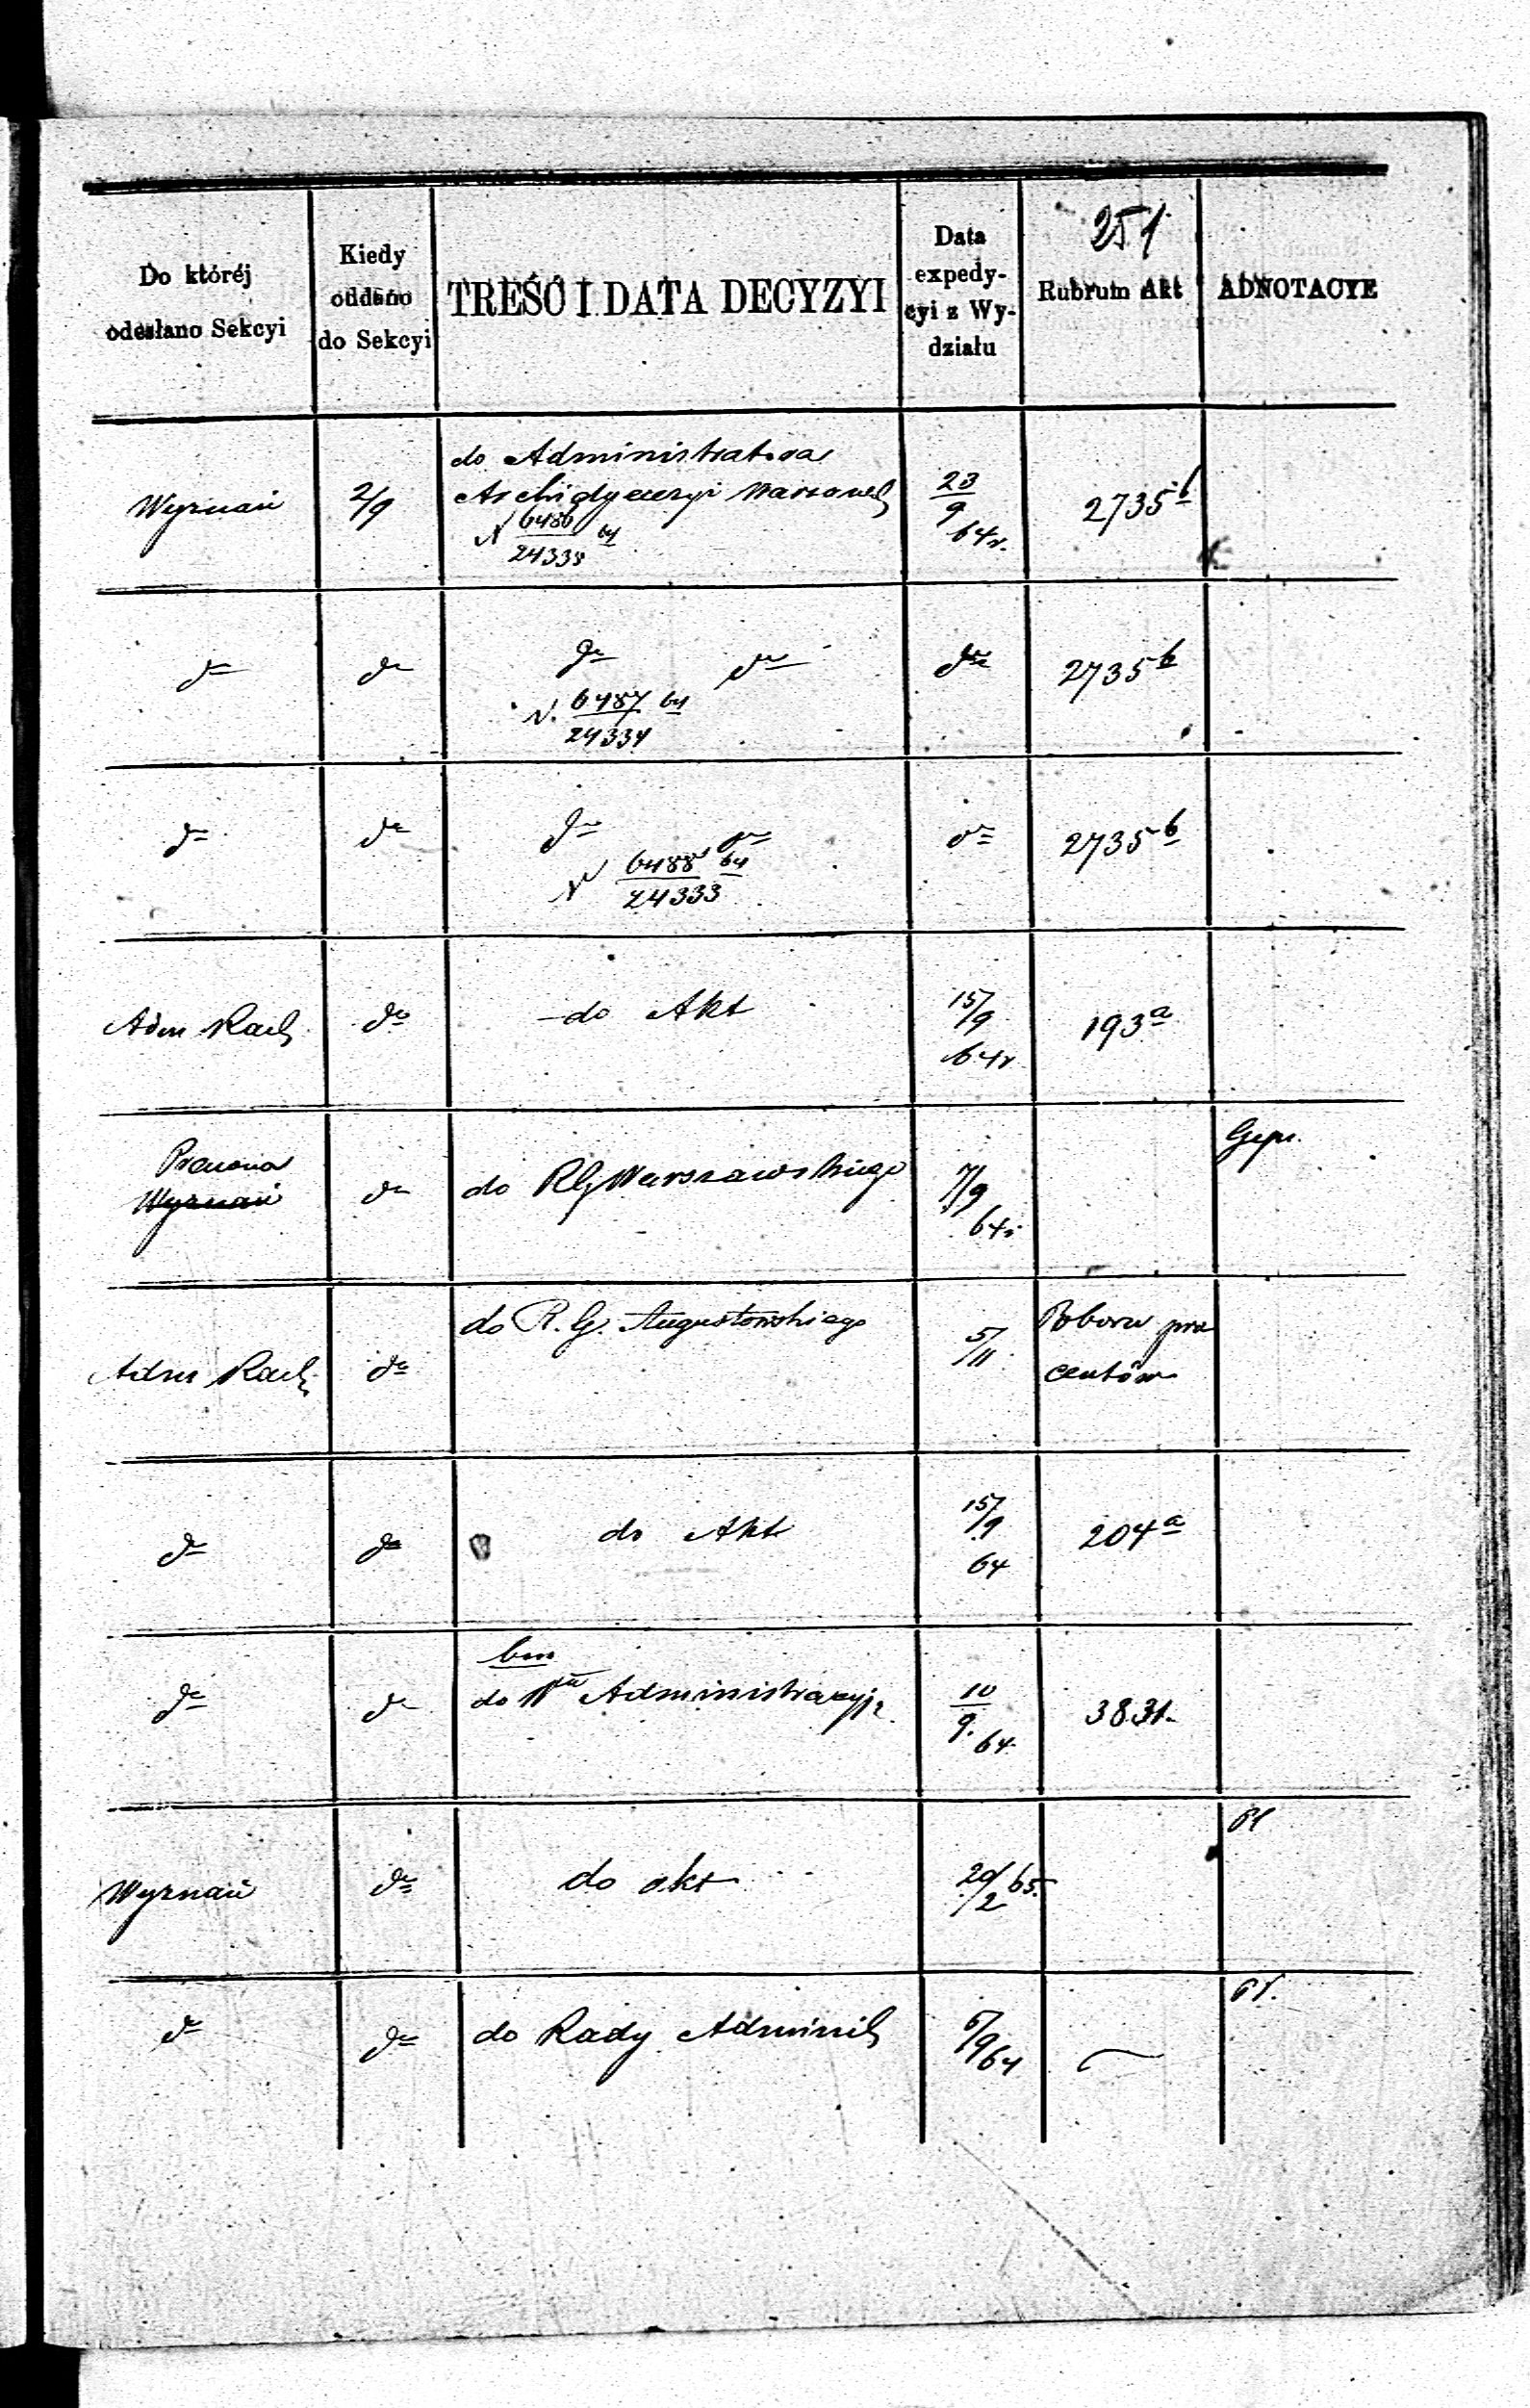 251
Do któréj
odesłano Sekcyi
Kiedy
oddano
do Sekcyi
TREŚĆ I DATA DECYZYI
Data
expedy-
cyi z Wy-
działu
Rubrum Akt
ADNOTACYE
Wyznań
2/9
do Administratora
Archidyecezyi Warszaws
N 6486/24338 64
23/9 64 r.
2735 b
do
do
do do
N. 6487/24334 64
do
2735 b
do
do
do do
N 6488/24333 64
do
2735 b
Adm Rach
do
do Akt
15/9
64 r
193 a
Wyznań
do
do RG Warszawskiego
7/9
64 r
Adm Rach
do
do R. G. Augustowskiego
5/11
Poboru pro
centów
do
do
do Akt
15/9
64
204 a
do
do
bm
do Włu Administracyj
10/9. 64
3831
Wyznań
do
do akt
20/2 65.
do
do
do Rady Adminis
6/9 64